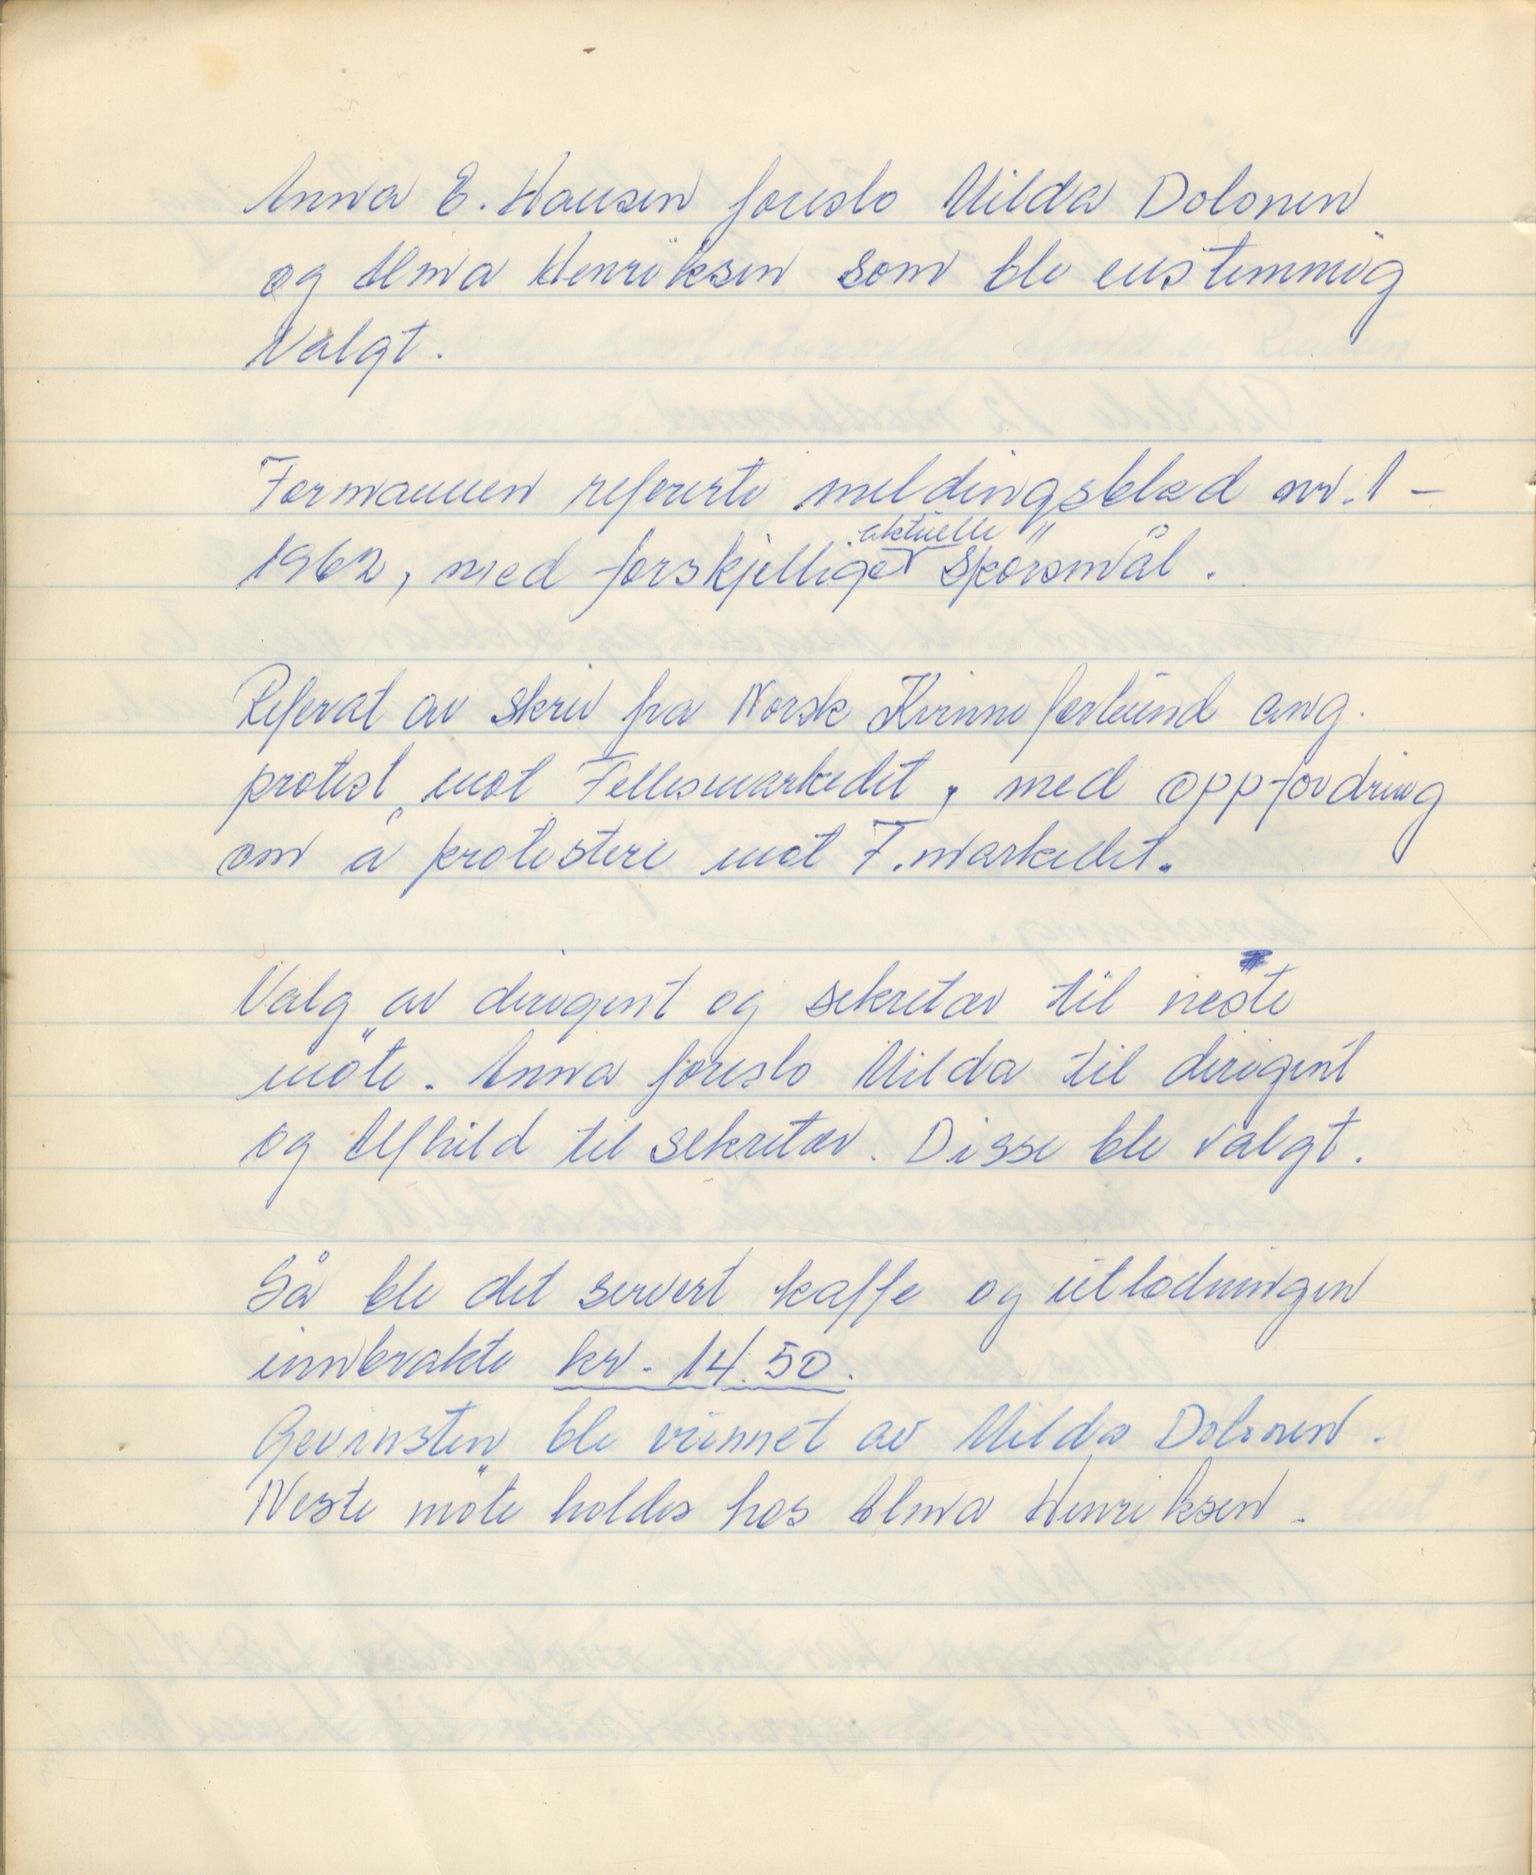 Anna E. Hansen foreslo Milda Dolonen
og Alma Henriksen som ble enstemmig
valgt.
Formannen refererte meldingsblad nr. 1 -
1962, med forskjellige aktuelle spörsmål.
Referat av skriv fra Norsk Kvinneforbund ang.
protest mot Fellesmarkedet, med oppfordring
om å protestere mot F. markedet.
Valg av dirigent og sekretær til neste
möte. Anna foreslo Milda til dirigent
og Alfhild til sekretær. Disse ble valgt.
Så ble det servert kaffe og utlodningen
innbrakte kr. 14.50.
Gevinsten ble vunnet av Milda Dolonen.
Neste möte holdes hos Alma Henriksen.